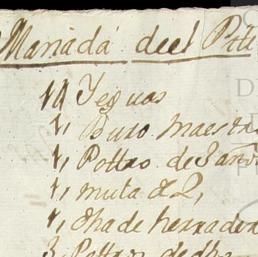 Manada deel
14 Yeguas
1, Buro maestro
1, Pottro de 3 año
1, mula d 2,
1, dha de herrader
3 Pottr de dh